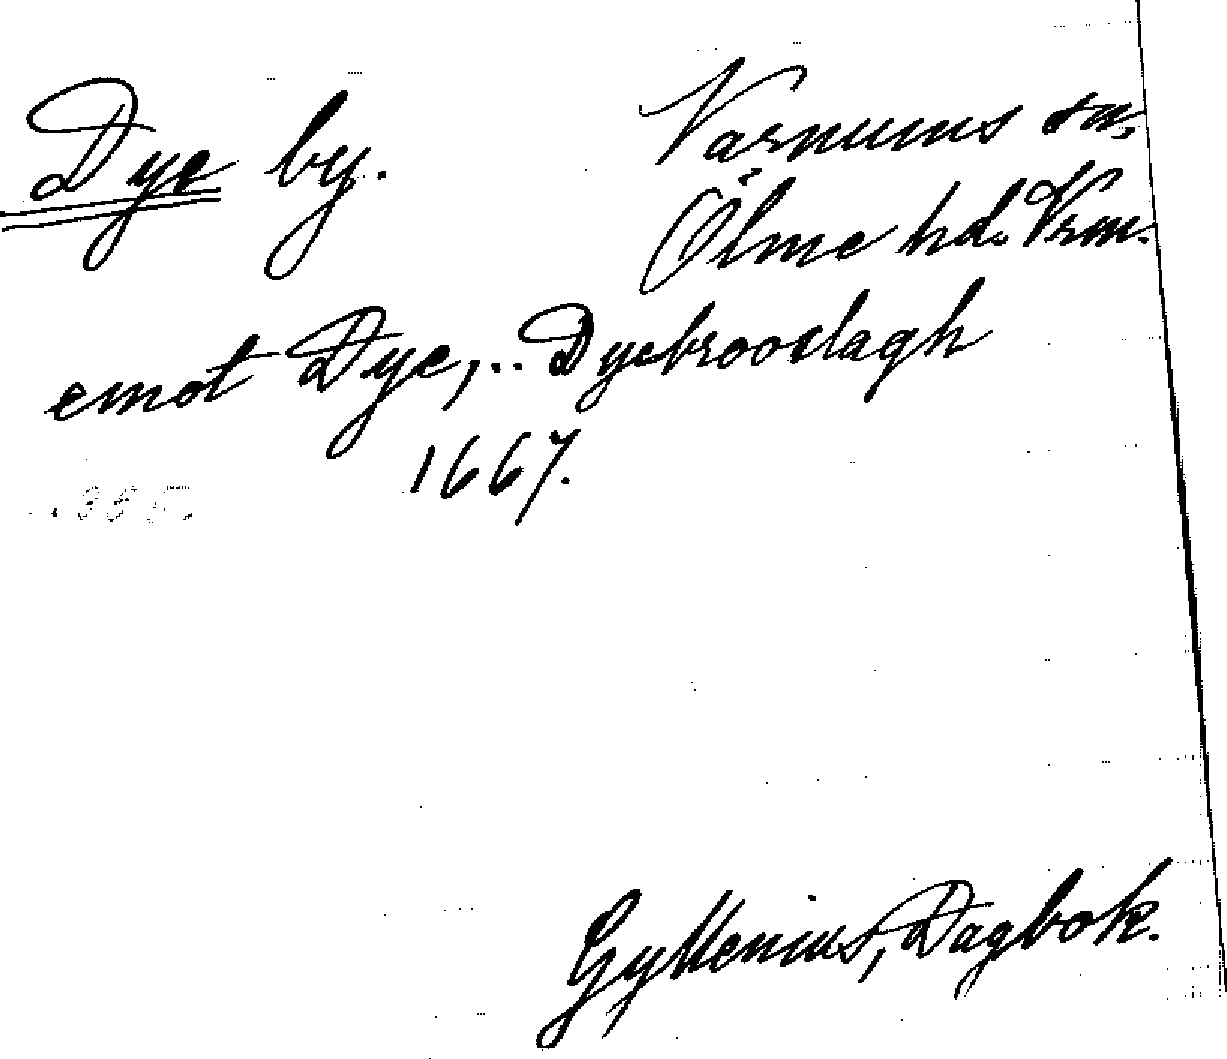 Dye by. Varnums sn,
Ölme hd. Vrm.
emot Dye, .. Dyebrooslagh
1667.
Gyllenius, Dagbok.